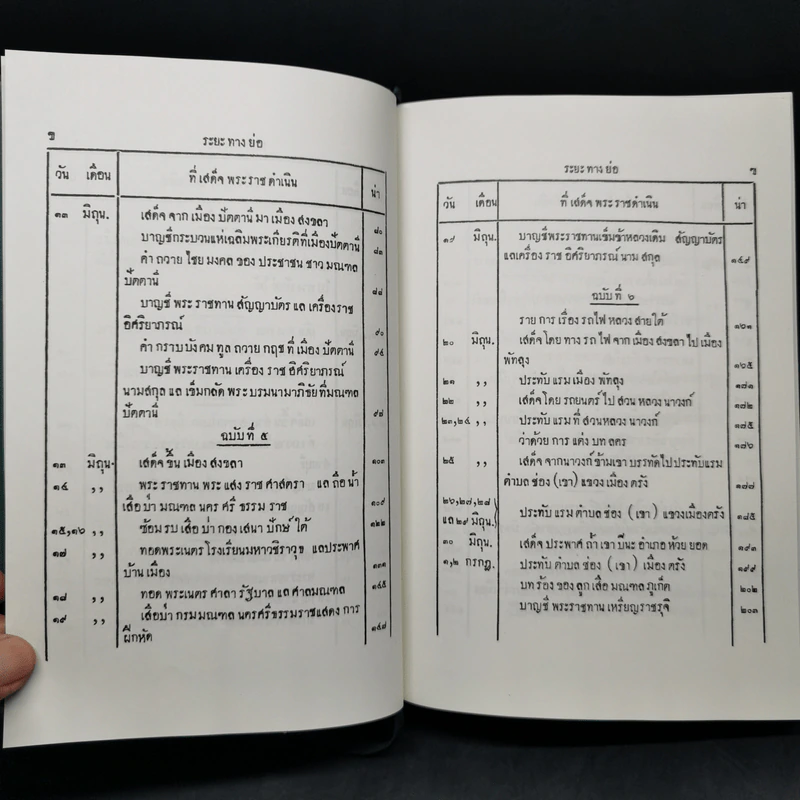 ข
ระยะ ทาง ย่อ
วัน เดือน ที่ เสด็จ พระ ราช ดำเนิน น่า
๑๓ มิถุน. เสด็จ จาก เมือง ปัตตานี มา เมือง สงขลา ๘๐
บาญชีกระบวนแห่เฉลิมพระเกียรติที่เมืองปัตตานี ๘๓
คำ ถวาย ไชย มงคล ของ ประชาชน ชาว มณฑล
ปัตตานี ๘๘
บาญชี พระ ราชทาน สัญญาบัตร แล เครื่องราช
อิศริยาภรณ์ ๙๐
คำ กราบ บังคม ทูล ถวาย กฤช ที่ เมือง ปัตตานี ๙๔
บาญชี พระราชทาน เครื่อง ราช อิศริยาภรณ์
นามสกุล แล เข็มกลัด พระ บรมนามาภิชัยที่มณฑล
ปัตตานี ๙๗
ฉบับ ที่ ๕
๑๓ มิถุน. เสด็จ ขึ้น เมือง สงขลา ๑๐๓
๑๔ ,, พระ ราชทาน พระ แสง ราช ศาสตรา แล ถือ น้ำ
เสือ ป่า มณฑล นคร ศรี ธรรม ราช ๑๐๙
๑๕,๑๖ ,, ซ้อม รบ เสือ ป่า กอง เสนา รักษ์ ใต้ ๑๒๒
๑๗ ,, ทอดพระเนตร โรงเรียนมหาวชิราวุธ แลประพาศ
บ้าน เมือง ๑๓๑
๑๘ ,, ทอด พระเนตร ศาลา รัฐบาล แล ศาลมณฑล ๑๔๕
๑๙ ,, เสือป่า กรม มณฑล นครศรีธรรมราชแสดง การ
ฝึกหัด ๑๔๗
ระยะ ทาง ย่อ
วัน เดือน ที่ เสด็จ พระ ราชดำเนิน น่า
๑๙ มิถุน. บาญชีพระราชทานเข็มข้าหลวงเดิม สัญญาบัตร
แลเครื่อง ราช อิศริยาภรณ์ นาม สกุล ๑๔๙
ฉบับ ที่ ๖
ราย การ เรื่อง รถไฟ หลวง สายใต้ ๑๖๑
๒๐ มิถุน. เสด็จ โดย ทาง รถ ไฟ จาก เมือง สงขลา ไป เมือง
พัทลุง ๑๖๕
๒๑ ,, ประทับ แรม เมือง พัทลุง ๑๗๑
๒๒ ,, เสด็จ โดย รถยนตร์ ไป สวน หลวง นาวงก์ ๑๗๒
๒๓,๒๔ ,, ประทับ แรม ที่ สวนหลวง นาวงก์ ๑๗๕
ว่าด้วย การ แต่ง บท ลคร ๑๗๖
๒๕ ,, เสด็จ จากนาวงก์ ข้ามเขา บรรทัดไปประทับแรม
ตำบล ช่อง (เขา) แขวง เมือง ตรัง ๑๗๗
๒๖,๒๗,๒๘
แล ๒๙ มิถุน. ประทับ แรม ตำบล ช่อง (เขา) แขวงเมืองตรัง ๑๘๕
๓๐ มิถุน. เสด็จ ประพาศ ถ้ำ เขา ปีนะ อำเภอ ห้วย ยอด ๑๙๓
๑,๒ กรกฎ. ประทับ ตำบล ช่อง (เขา) เมือง ตรัง ๑๙๙
บท ร้อง ของ ลูก เสือ มณฑล ภูเก็ต ๒๐๒
บาญชี พระราชทาน เหรียญราชรุจิ ๒๐๓